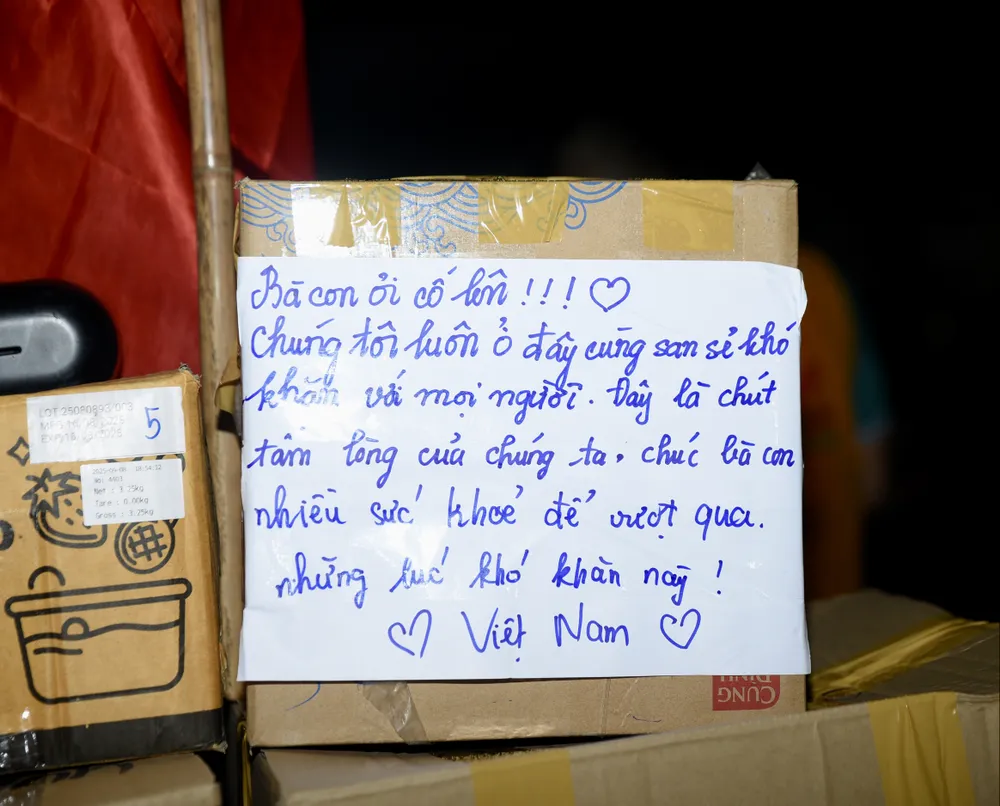 Bà con ơi cố lên !!! ♡
Chúng tôi luôn ở đây cùng san sẻ khó
khăn với mọi người. Đây là chút
tấm lòng của chúng ta. chúc bà con
nhiều sức khoẻ để vượt qua.
những lúc khó khăn này !
♡ Việt Nam ♡
LOT:25080893/003
5
Net : 3.25kg
Tare : 0.00kg
Gross : 3.25kg
CUNG
ĐÌNH